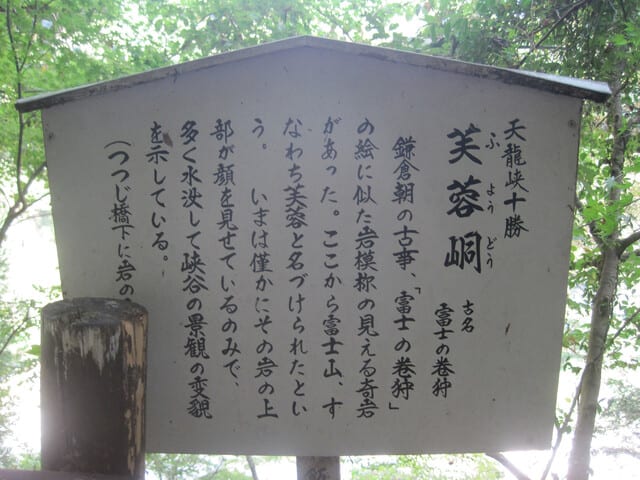 天龍峡十勝
芙蓉峒
ふようどう
古名
富士の巻狩
鎌倉朝の古事、「富士の巻狩」
の絵に似た岩模様の見える奇岩
があった。ここから富士山、す
なわち芙蓉と名づけられたとい
う。　いまは僅かにその岩の上
部が顔を見せているのみで、
多く水没して峡谷の景観の変貌
を示している。
（つつじ橋下に岩の